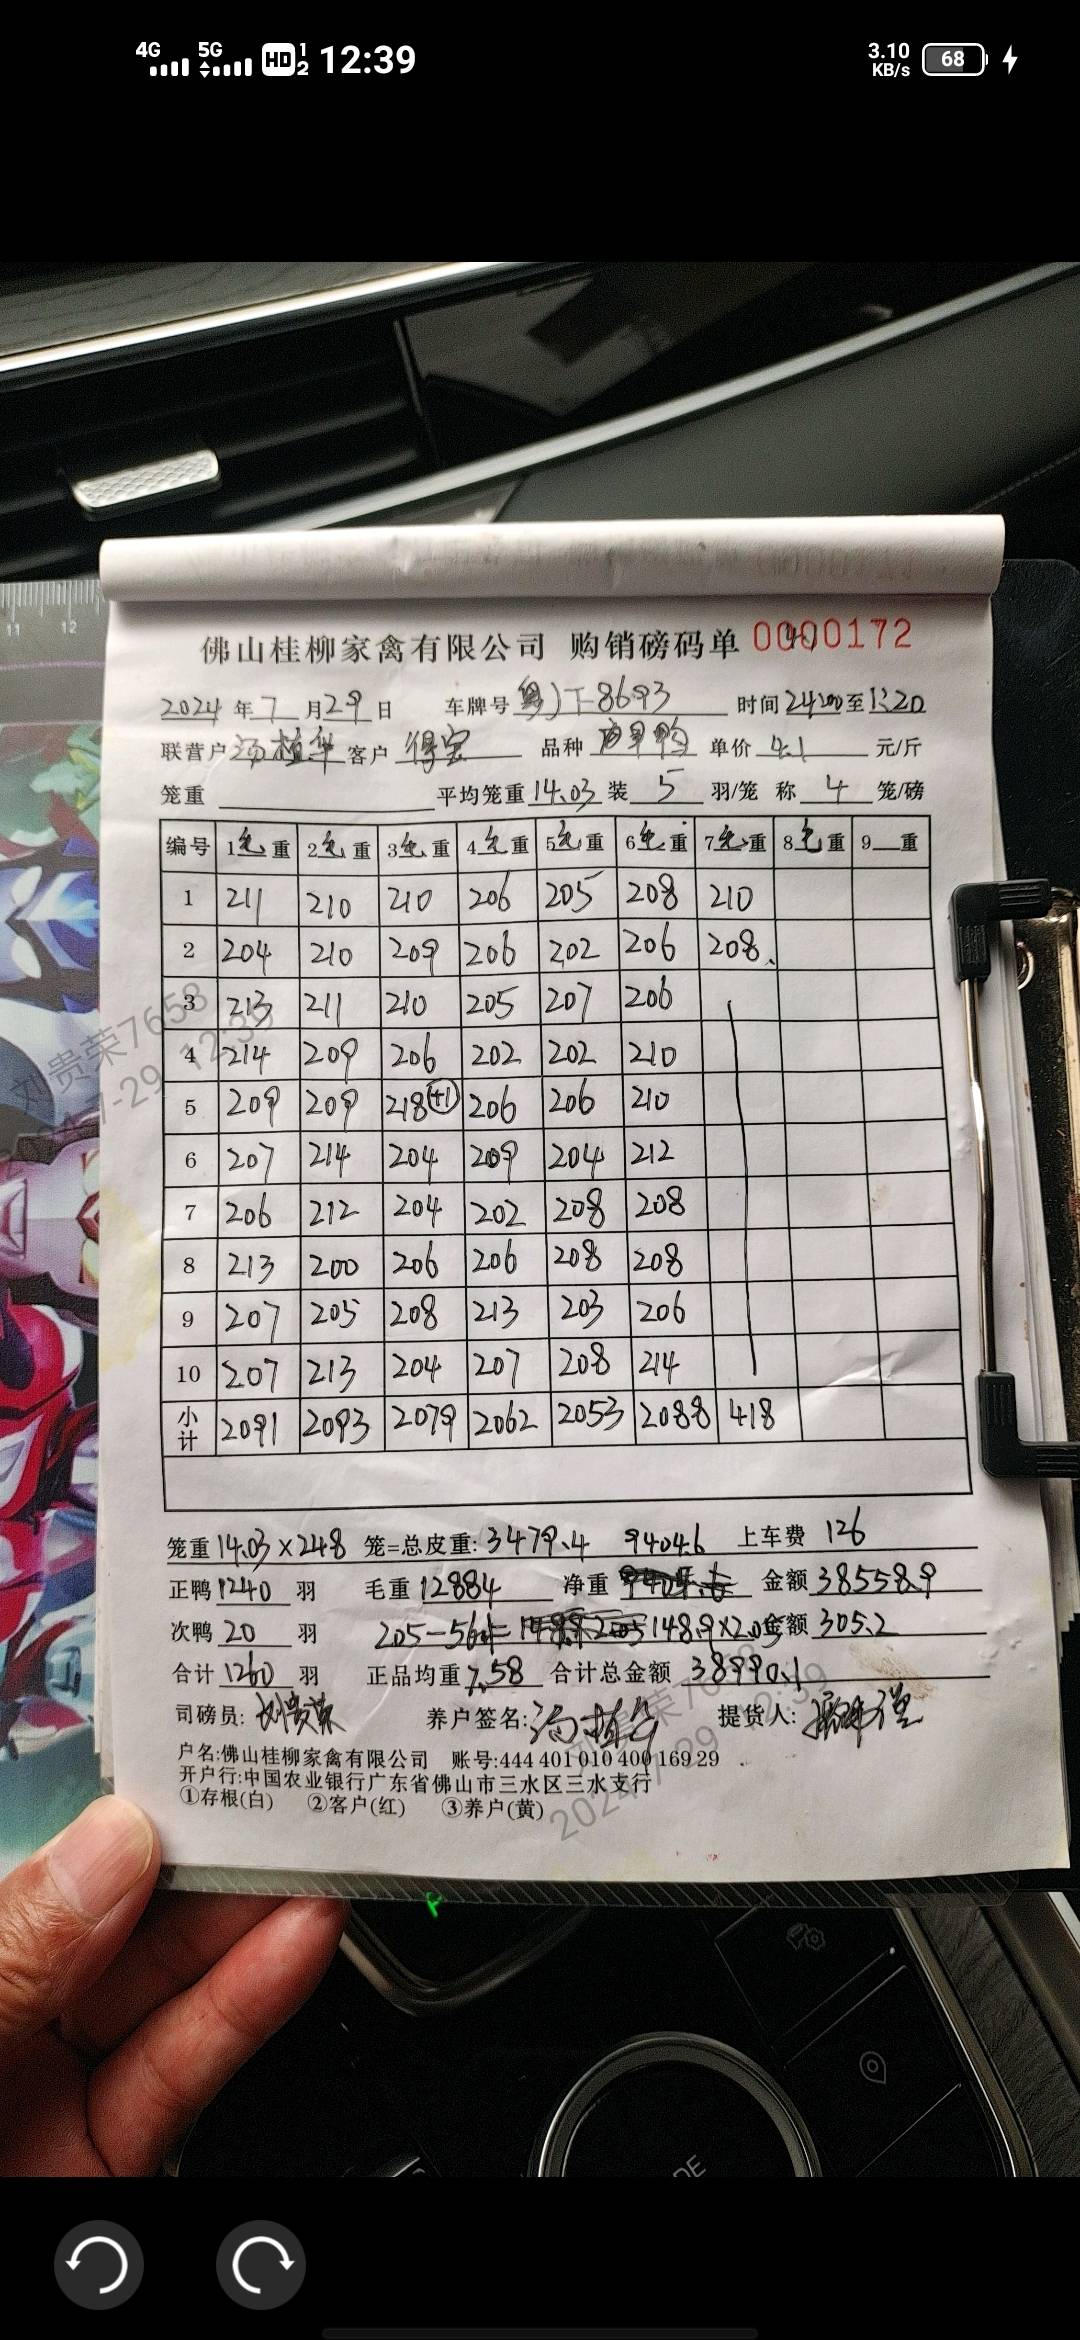 4G 5G HD 1 2 12:39 3.10 KB/s 68
11 12
佛山桂柳家禽有限公司 购销磅码单 0000172
2024年7月29日 车牌号 粤J T8693 时间 24:00至1:20
联营户 汤植华 客户 得宝 品种 单价 4.1 元/斤
笼重 平均笼重 14.03 装 5 羽/笼 称 4 笼/磅
编号 1毛重 2毛重 3毛重 4毛重 5毛重 6毛重 7毛重 8毛重 9重
1 211 210 210 206 205 208 210
2 204 210 209 206 202 206 208
3 213 211 210 205 207 206
4 214 209 206 202 202 210
5 209 209 218(+1) 206 206 210
6 207 214 204 209 204 212
7 206 212 204 202 208 208
8 213 200 206 206 208 208
9 207 205 208 213 203 206
10 207 213 204 207 208 214
小计 2091 2093 2079 2062 2053 2088 418
笼重 14.03×248 笼=总皮重: 3479.4 9404.6 上车费 126
正鸭 1240 羽 毛重 12884 净重 金额 38558.9
次鸭 20 羽 205-56.1= 148.9×2.05 金额 305.2
合计 1260 羽 正品均重 7.58 合计总金额 38990.1
司磅员: 刘贵荣 养户签名: 汤植华 提货人:
户名:佛山桂柳家禽有限公司 账号:444 401 010 400 169 29
开户行:中国农业银行广东省佛山市三水区三水支行
①存根(白) ②客户(红) ③养户(黄)
刘贵荣7658
7-29 12:39